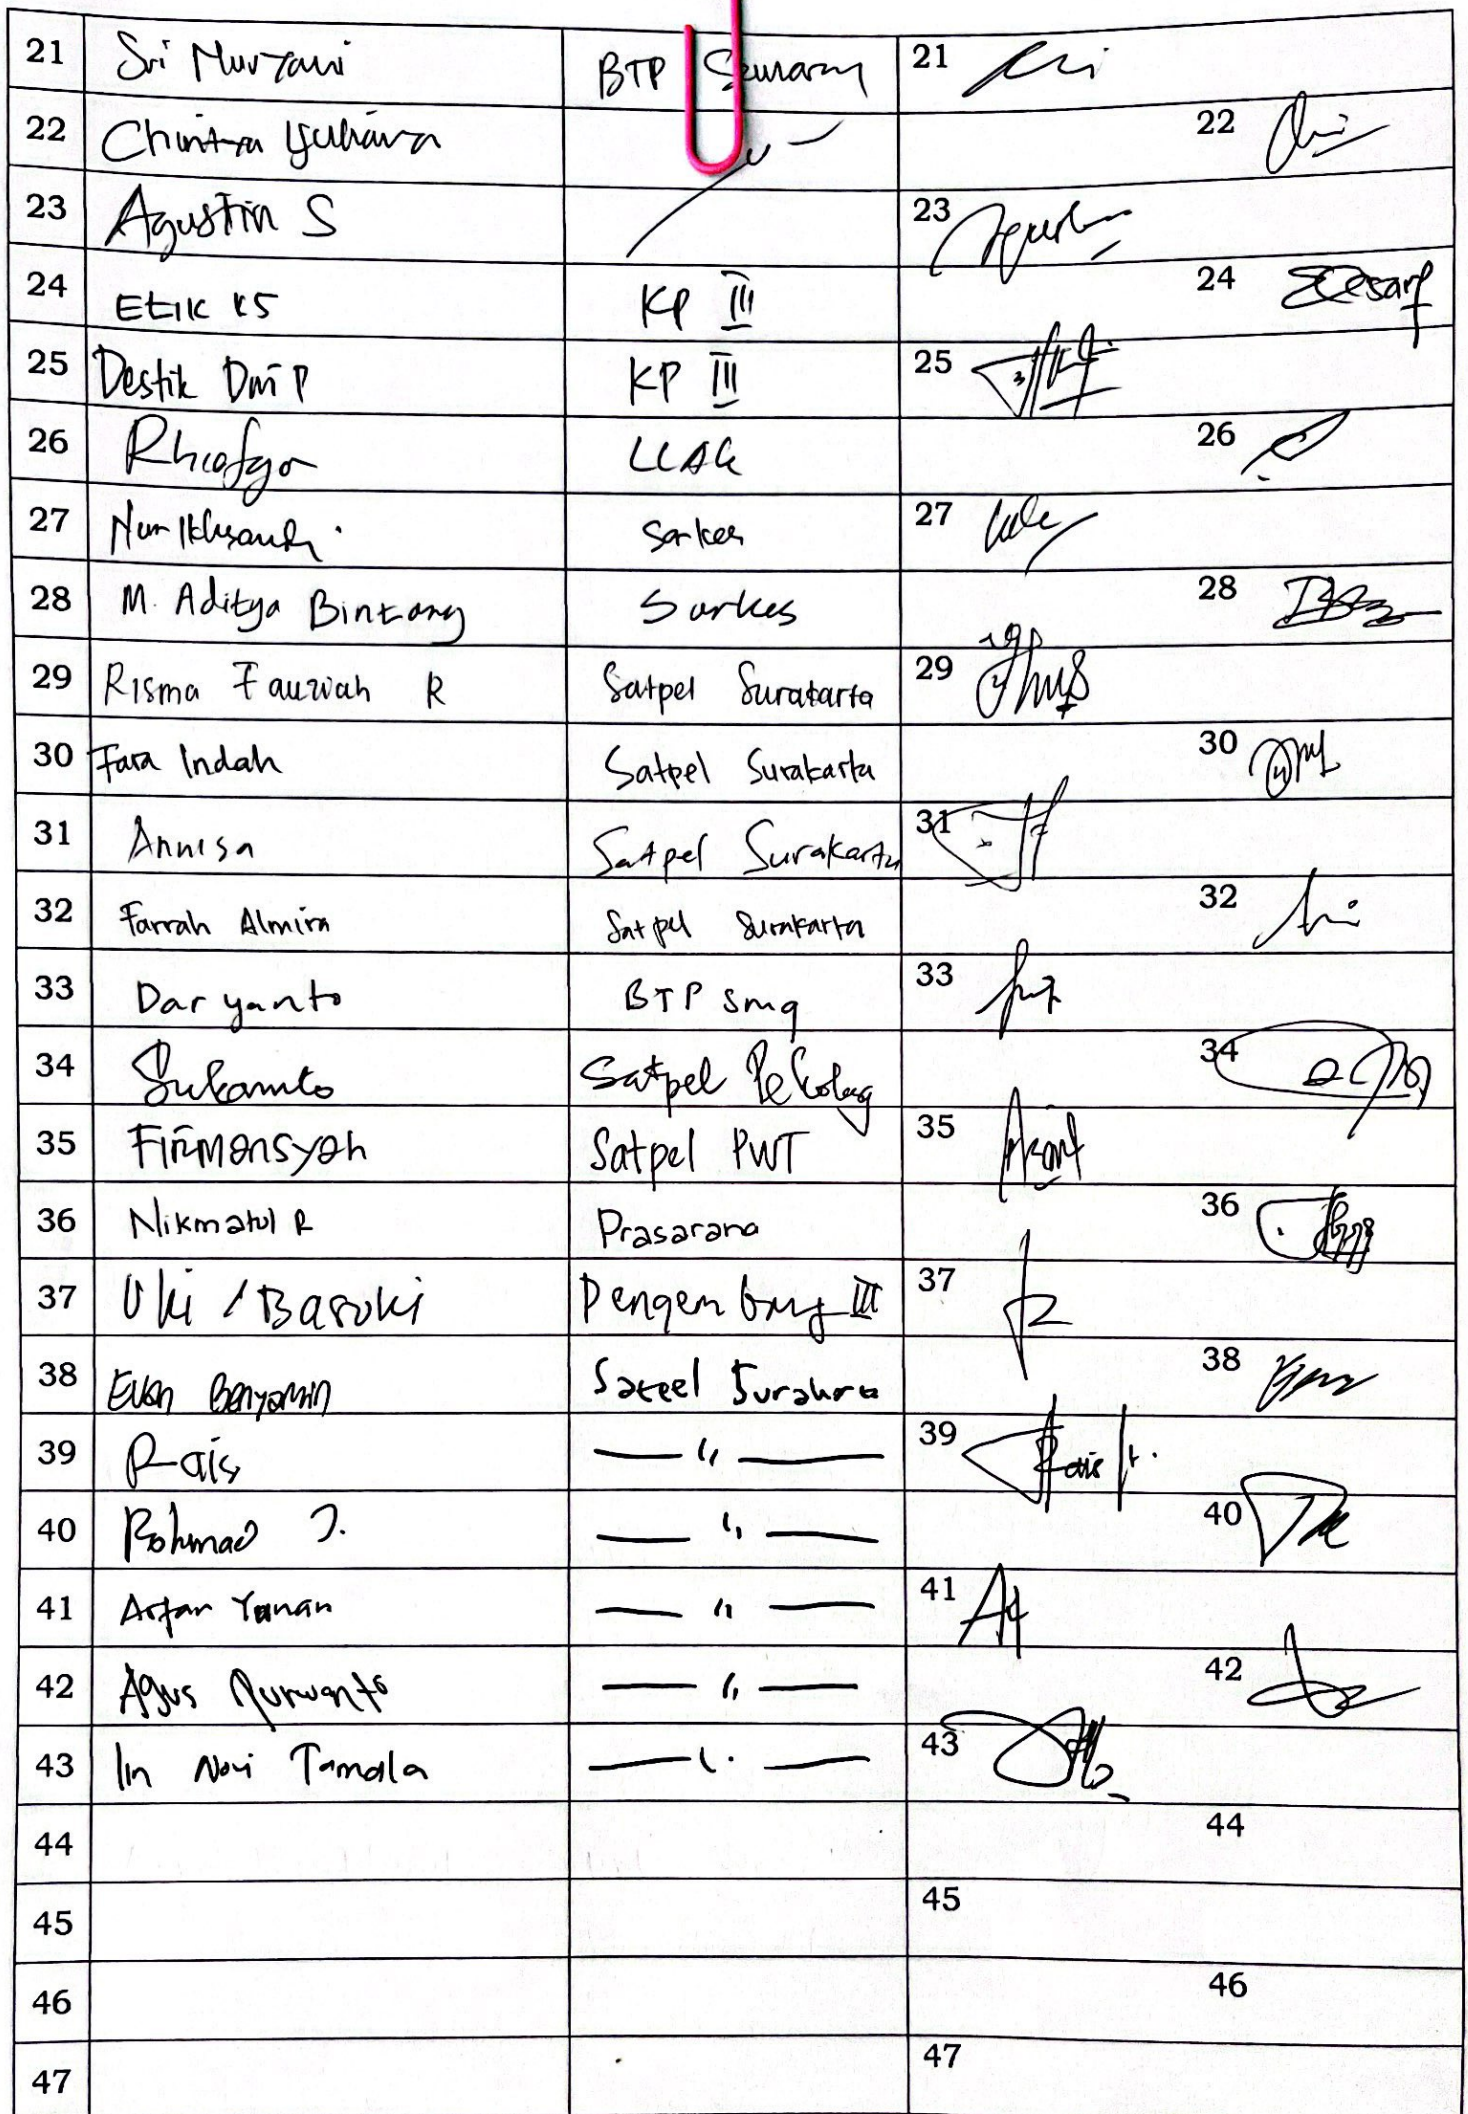 21 Sri Nuryani BTP 21
22 Chintya Yuliana 22
23 Agustin S 23
24 Etik KS KP III 24
25 Destik Dwi P KP III 25
26 LLAK 26
27 Nur Sarkes 27
28 M. Aditya Bintang Sarkes 28
29 Risma Fauziah R Satpel Surakarta 29
30 Fara Indah Satpel Surakarta 30
31 Annisa Satpel Surakarta 31
32 Farrah Almira Satpel Surakarta 32
33 Daryanto BTP smg 33
34 Sukamto Satpel 34
35 Firmansyah Satpel PWT 35
36 Nikmatul R Prasarana 36
37 Uki / Basuki III 37
38 Evan Benyamin 38
39 Rais — " — 39 Rais
40 Rohmad J. — " — 40
41 Arfan Yanan — " — 41
42 Agus Purwanto — " — 42
43 Iin Novi Tamala — " — 43
44 44
45 45
46 46
47 47